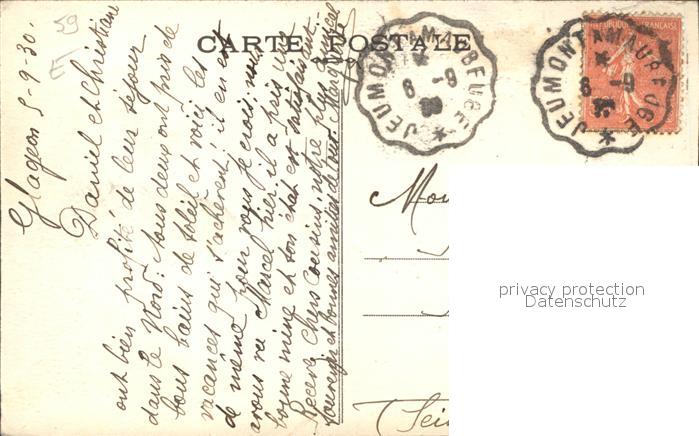 59
CARTE POSTALE
Glageon 5-9-30.
Daniel et Christiane
ont bien profité de leur séjour
dans le Nord: tous deux ont pris de
bons bains de soleil et voici les
vacances qui s'achèvent! il en est
de même pour vous je crois, nous
avons vu Marcel hier, il a
bonne mine et son état est satisfaisant.
Recevez chers Cousins, notre plus
souvenir et bonnes amitiés de tous. Marg
JEUMONT A MAUBEUGE
6 -9
30
JEUMONT A MAUBEUGE
6 -9
30
REPUBLIQUE FRANÇAISE
Mon
(Sei
privacy protection
Datenschutz